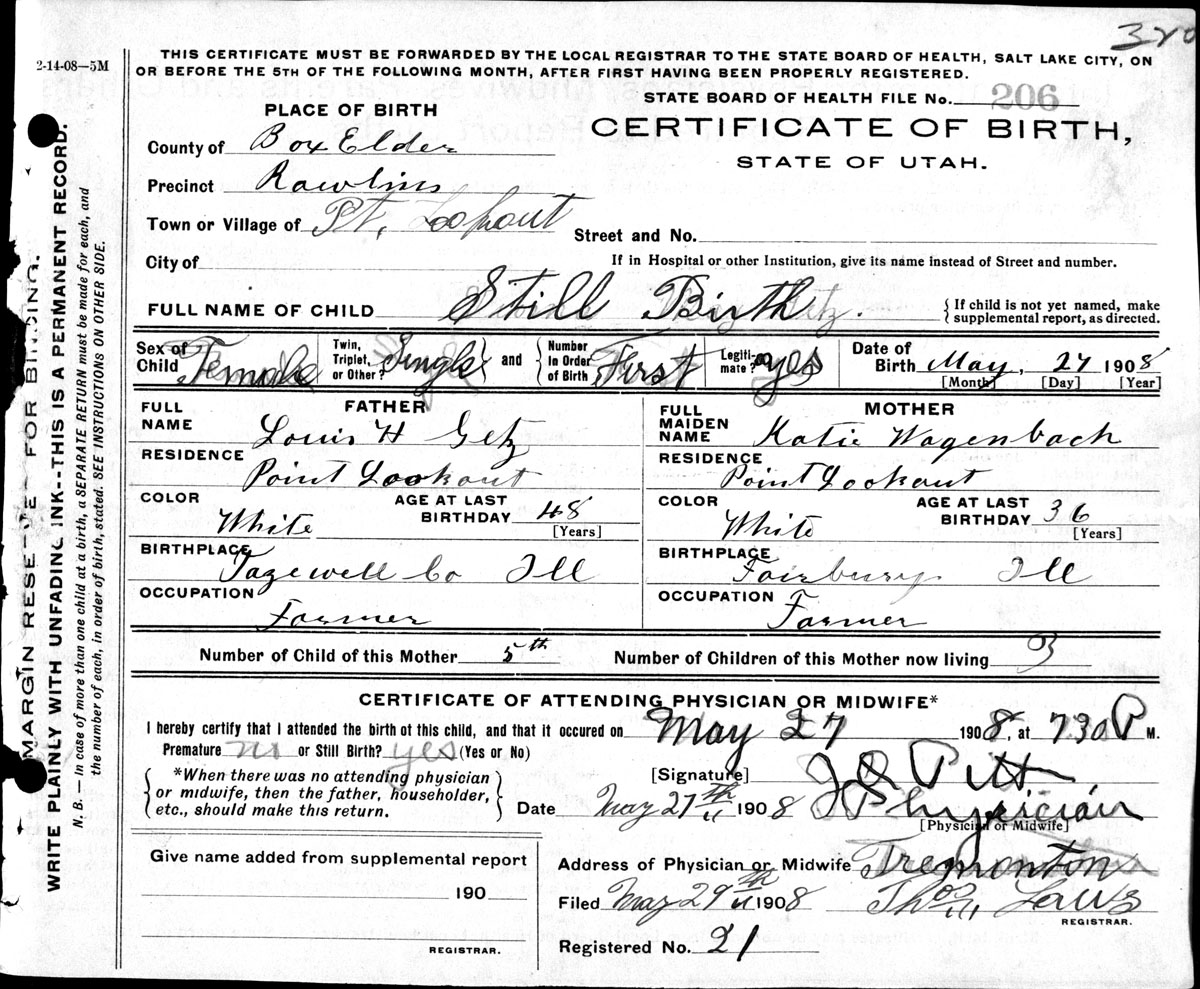 320
2-14-08—5M
THIS CERTIFICATE MUST BE FORWARDED BY THE LOCAL REGISTRAR TO THE STATE BOARD OF HEALTH, SALT LAKE CITY, ON
OR BEFORE THE 5TH OF THE FOLLOWING MONTH, AFTER FIRST HAVING BEEN PROPERLY REGISTERED.
PLACE OF BIRTH
STATE BOARD OF HEALTH FILE No. 206
CERTIFICATE OF BIRTH,
STATE OF UTAH.
County of Box Elder
Precinct Rawlins
Town or Village of Pt. Lookout
Street and No.
City of
If in Hospital or other Institution, give its name instead of Street and number.
FULL NAME OF CHILD Still Birth Getz.
{ If child is not yet named, make
supplemental report, as directed.
Sex of Child Female
Twin, Triplet, or Other? Single } and { Number in Order of Birth First
Legitimate? yes
Date of Birth May, 27 1908
[Month] [Day] [Year]
FATHER
FULL NAME Louis H Getz
RESIDENCE Point Lookout
COLOR White
AGE AT LAST BIRTHDAY 48
[Years]
BIRTHPLACE Tazewell Co Ill
OCCUPATION Farmer
MOTHER
FULL MAIDEN NAME Katie Wagenbach
RESIDENCE Point Lookout
COLOR White
AGE AT LAST BIRTHDAY 36
[Years]
BIRTHPLACE Fairbury Ill
OCCUPATION Farmer
Number of Child of this Mother 5th
Number of Children of this Mother now living 3
CERTIFICATE OF ATTENDING PHYSICIAN OR MIDWIFE*
I hereby certify that I attended the birth of this child, and that it occured on May 27 1908, at 730 P M.
Premature no or Still Birth? yes (Yes or No)
{ *When there was no attending physician
or midwife, then the father, householder,
etc., should make this return. }
[Signature] Pitt
Date May 27th 1908 Physician
[Physician or Midwife]
Give name added from supplemental report
190
REGISTRAR.
Address of Physician or Midwife Tremonton
Filed May 29th 1908 Thos Laws
REGISTRAR.
Registered No. 21
MARGIN RESERVE FOR BINDING.
WRITE PLAINLY WITH UNFADING INK--THIS IS A PERMANENT RECORD.
N. B.—In case of more than one child at a birth, a SEPARATE RETURN must be made for each, and
the number of each, in order of birth, stated. SEE INSTRUCTIONS ON OTHER SIDE.